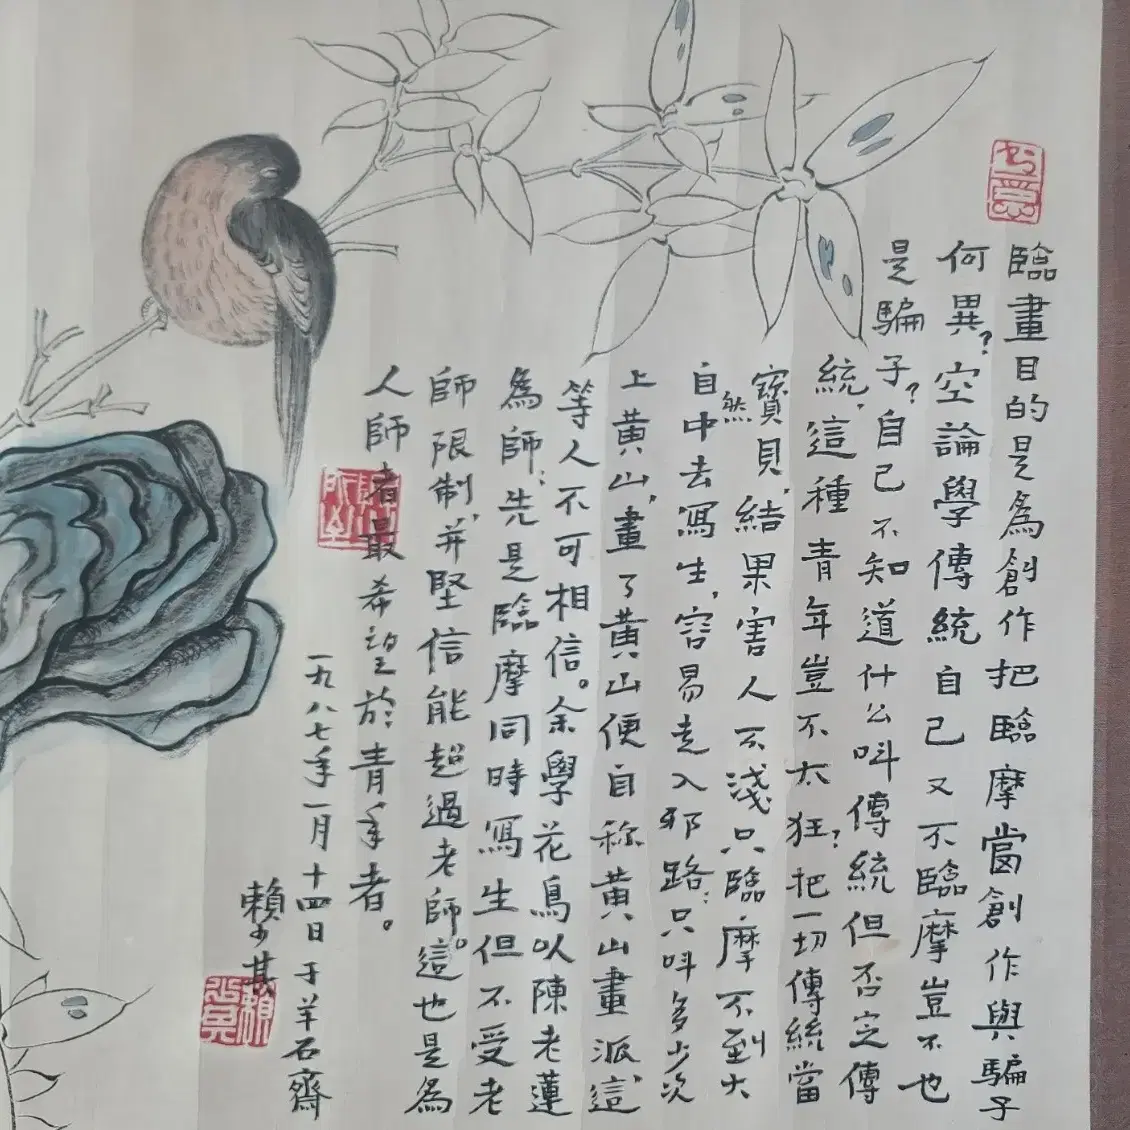 臨畫目的是為創作把臨摩當創作與騙子
何異?空論學傳統自己又不臨摩豈不也
是騙子?自己不知道什么叫傳統但否定傳
統,這種青年豈不太狂?把一切傳統當
寶貝,結果害人不淺只臨摩不到大
自然中去寫生,容易走入邪路:只叫多少次
上黃山,畫了黃山便自称黃山畫派,這
等人不可相信。余學花鳥以陳老蓮
為師:先是臨摩同時寫生但不受老
師限制,并堅信能超過老師。這也是為
人師者最希望於青年者。
一九八七年一月十四日于羊石齋
賴少其